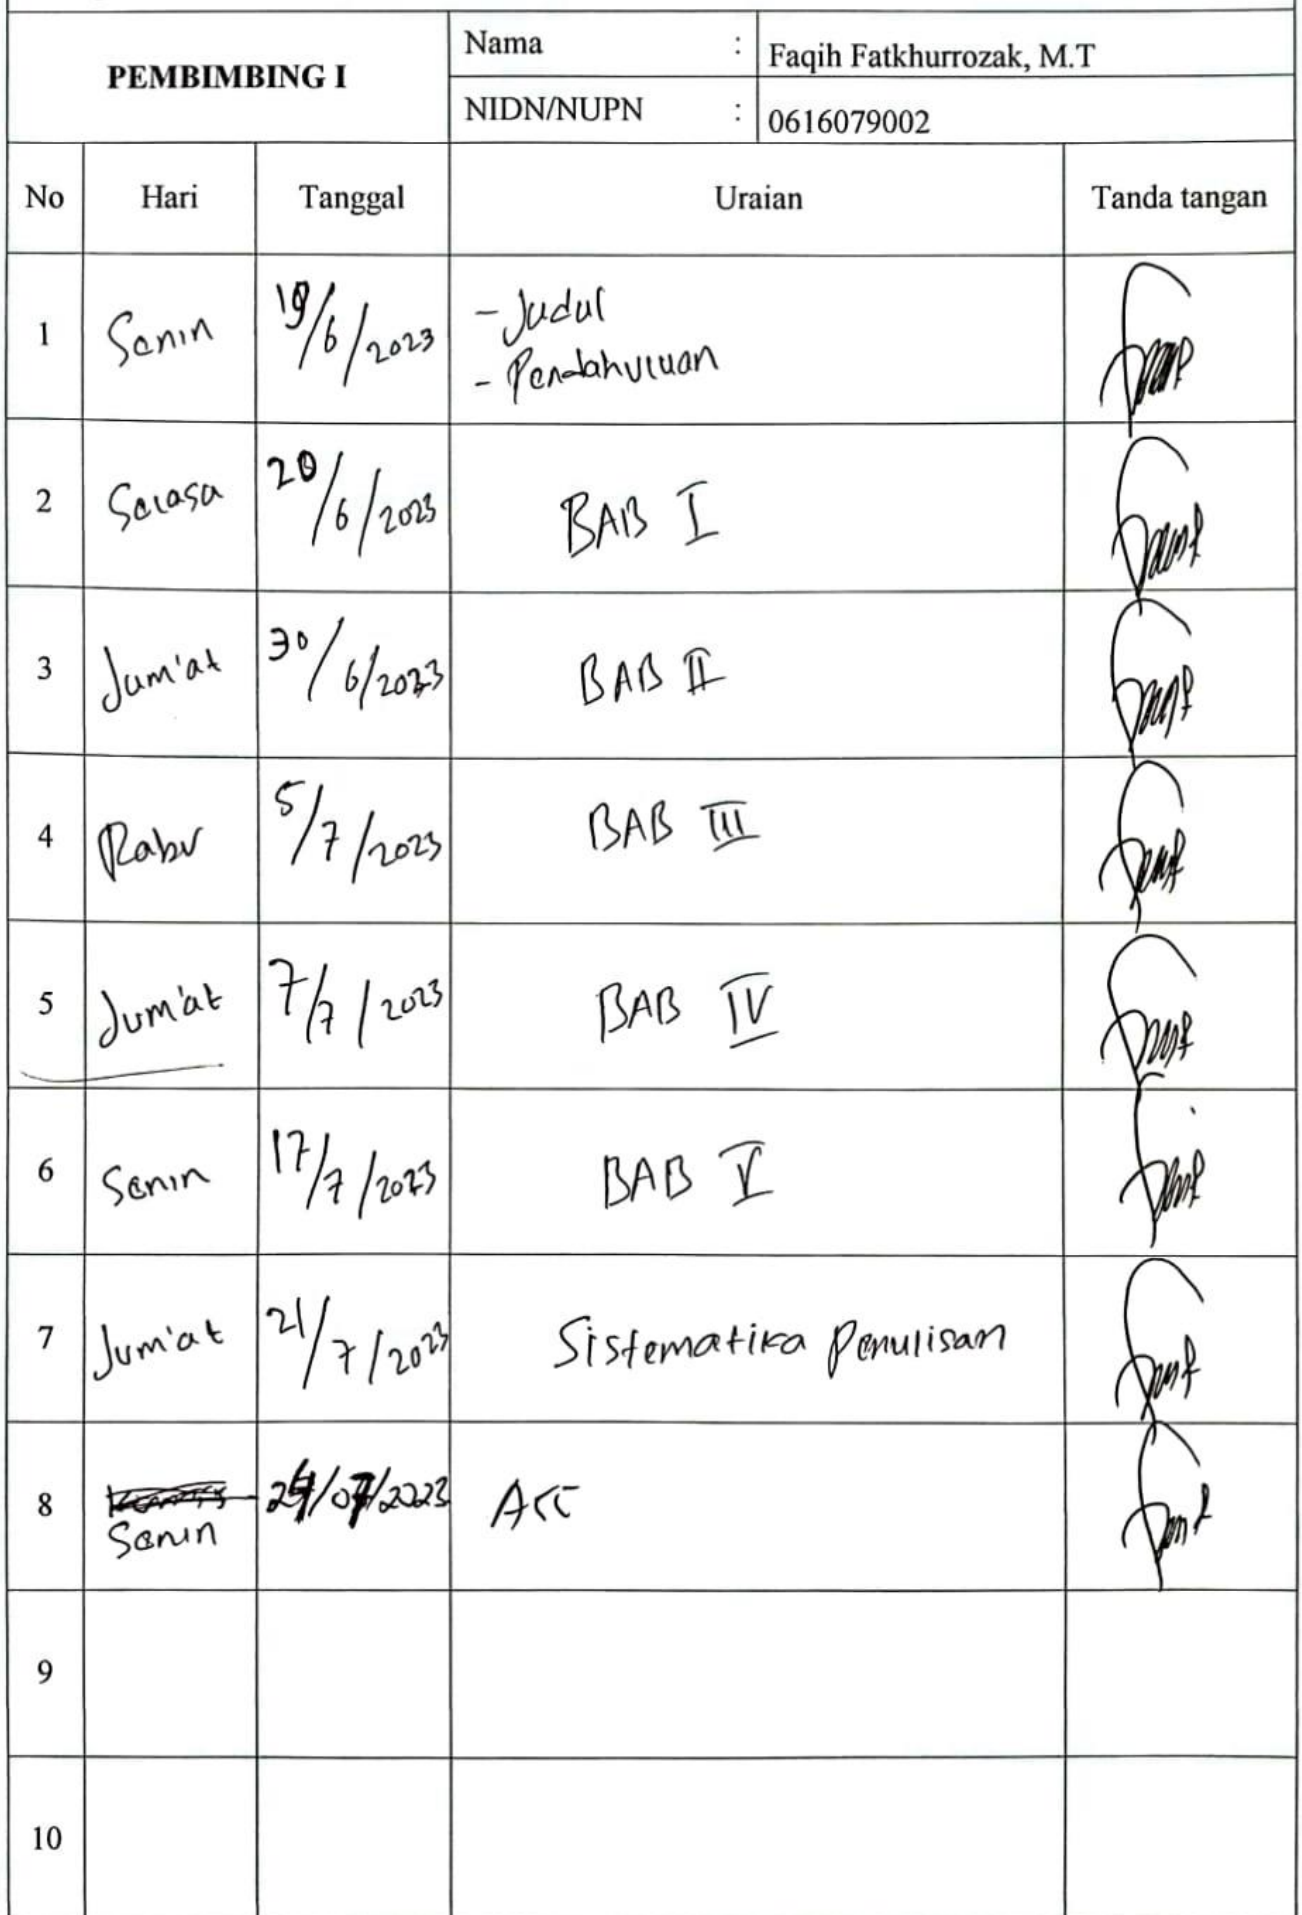 PEMBIMBING I
Nama : Faqih Fatkhurrozak, M.T
NIDN/NUPN : 0616079002
No Hari Tanggal Uraian Tanda tangan
1 Senin 19/6/2023 - Judul
- Pendahuluan
2 Selasa 20/6/2023 BAB I
3 Jum'at 30/6/2023 BAB II
4 Rabu 5/7/2023 BAB III
5 Jum'at 7/7/2023 BAB IV
6 Senin 17/7/2023 BAB V
7 Jum'at 21/7/2023 Sistematika Penulisan
8 Senin 24/07/2023 Acc
9
10